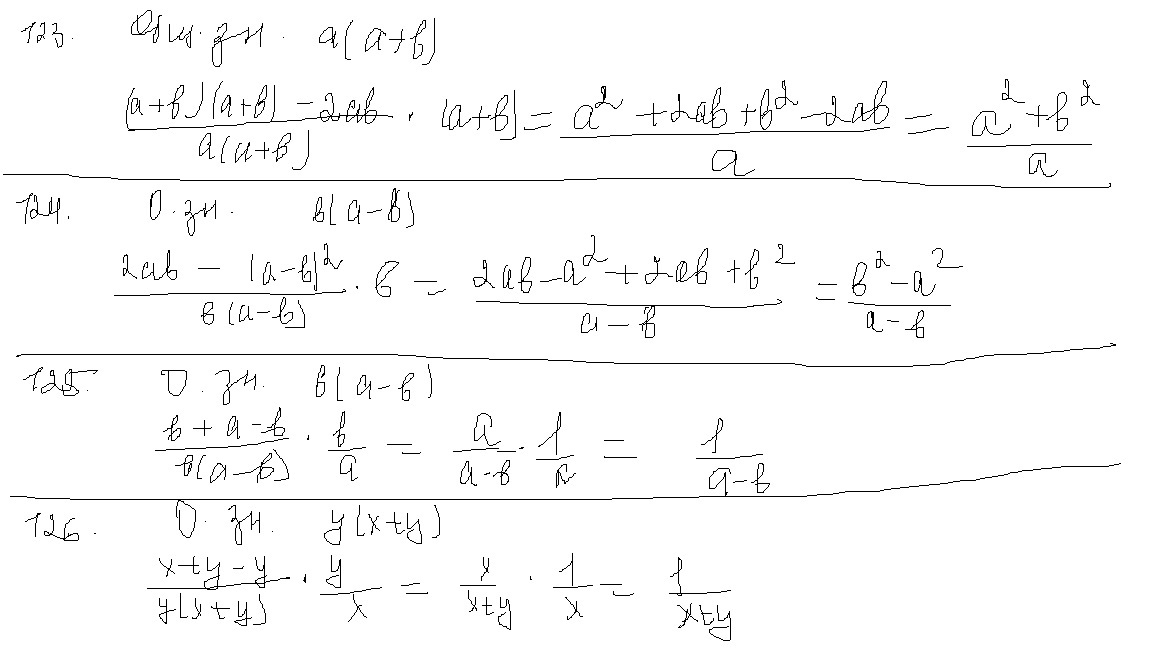 123. Общ. зн. a(a+b)
((a+b)(a+b) - 2ab)/(a(a+b)) · (a+b) = (a² + 2ab + b² - 2ab)/a = (a² + b²)/a
124. О. зн. b(a-b)
(2ab - (a-b)²)/(b(a-b)) · b = (2ab - a² + 2ab + b²)/(a-b) = (b² - a²)/(a-b)
125. О. зн. b(a-b)
(b+a-b)/(b(a-b)) · b/a = a/(a-b) · 1/a = 1/(a-b)
126. О. зн. y(x+y)
(x+y-y)/(y(x+y)) · y/x = x/(x+y) · 1/x = 1/(x+y)